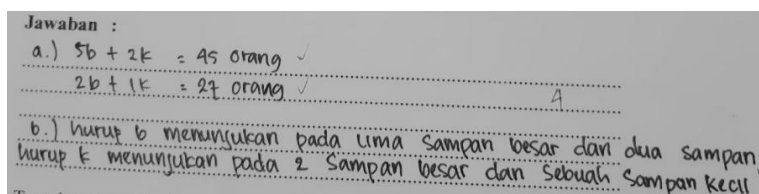 Jawaban :
a.) 5b + 2k = 45 orang ✓
2b + 1k = 27 orang ✓
4
b.) hurup b menunjukan pada lima sampan besar dan dua sampan
hurup k menunjukan pada 2 sampan besar dan sebuah sampan kecil